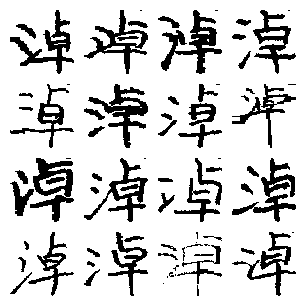 淖淖淖淖
淖淖淖淖
淖淖淖淖
淖淖淖淖